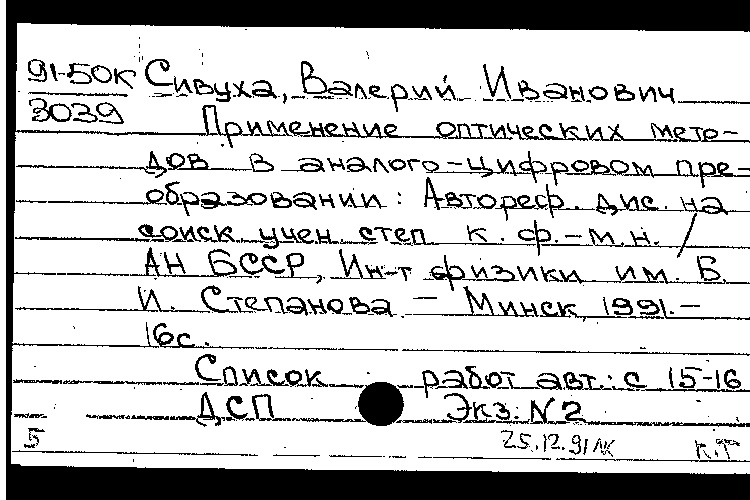 91-50К Сивуха, Валерий Иванович
3039
Применение оптических мето-
дов в аналого-цифровом пре-
образовании: Автореф. дис. на
соиск. учен. степ. к. ф.-м.н. /
АН БССР, Ин-т физики им. Б.
И. Степанова — Минск, 1991.—
16с.
Список работ авт.: с 15-16
ДСП Экз. N2
5 25.12.91 К.Т